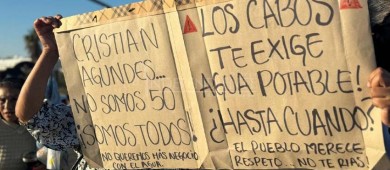 CRISTIAN
AGUNDES...
NO SOMOS 50
¡SOMOS TODOS!
NO QUEREMOS MÁS NEGOCIO
CON EL AGUA.
LOS CABOS
TE EXIGE
AGUA POTABLE!
¿HASTA CUANDO?
EL PUEBLO MERECE
RESPETO... NO TE RIAS.